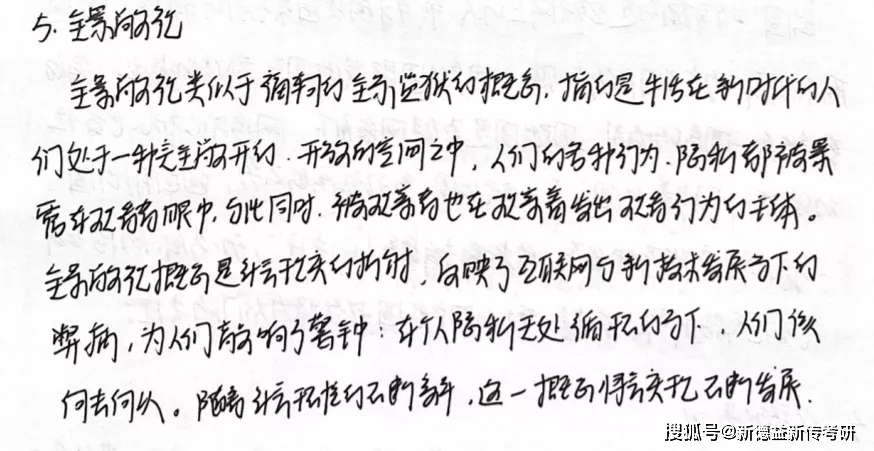 5. 全景敞视
全景敞视类似于福柯的全景监狱的概念，指的是生活在新时代的人
们处于一种完全敞开的、开放的空间之中，人们的各种行为、隐私都被暴
露在观看者眼中，与此同时，被观察者也在观察着发出观看行为的主体。
全景敞视概念是社会现实的折射，反映了互联网与新技术发展之下的
弊病，为人们敲响了警钟：在个人隐私无处循环的当下，人们该
何去何从。随着社会的不断，这一概念将会不断发展.
搜狐号@新德益新传考研